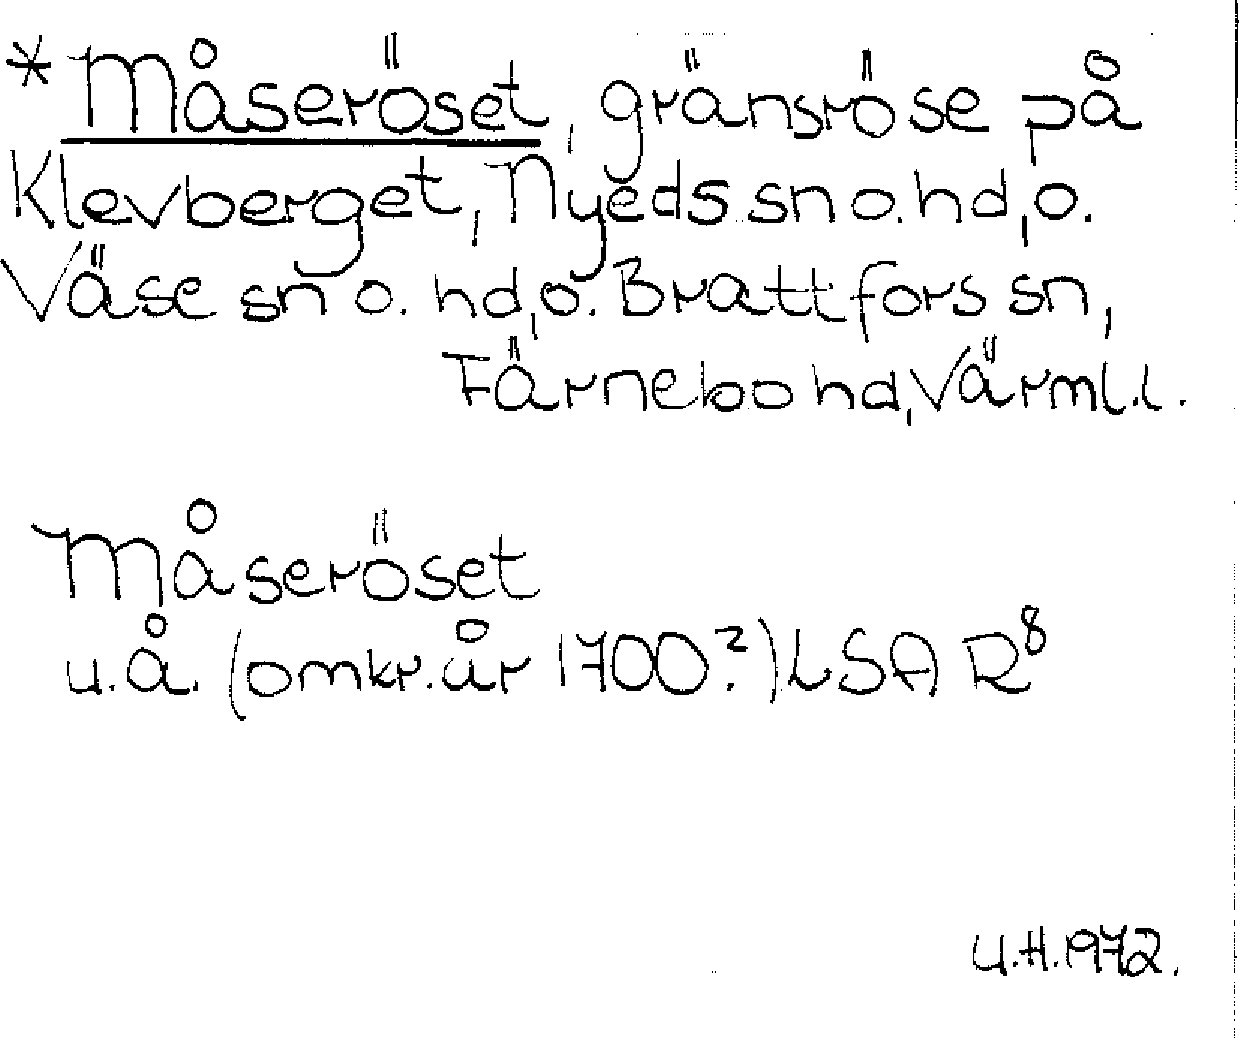 *Måseröset, gränsröse på
Klevberget, Nyeds sn o. hd, o.
Väse sn o. hd, o. Brattfors sn,
Färnebo hd, Värml. l.
Måseröset
u.å. (omkr. år 1700?) LSA R⁸
U.H. 1972.